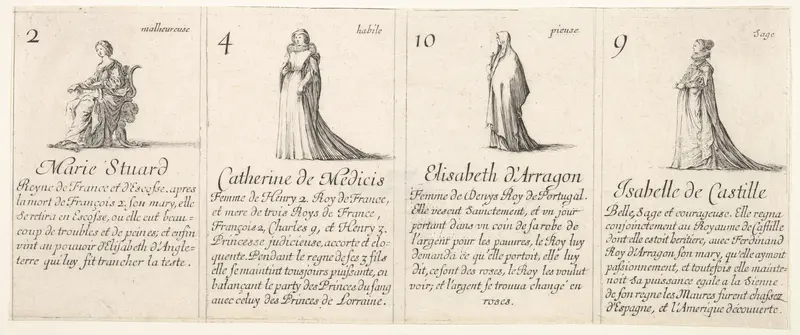 2
malheureuse
Marie Stuard
Reyne de France et d'Escosse. apres
la mort de François 2. son mary, elle
se retira en Escosse, ou elle eut beau=
coup de troubles et de peines; et enfin
vint au pouvoir d'Elisabeth d'Angle=
terre qui luy fit trancher la teste.
4
habile
Catherine de Medicis
Femme de Henry 2. Roy de France,
et mere de trois Roys de France,
François 2, Charles 9, et Henry 3.
Princesse judicieuse, accorte et elo=
quente. Pendant le regne de ses 3 fils
elle se maintint tousjours puissante, en
balançant le party des Princes du sang
avec celuy des Princes de Lorraine.
10
pieuse
Elisabeth d'Arragon
Femme de Denys Roy de Portugal.
Elle vescut Sainctement, et un jour
portant dans un coin de sa robe de
l'argent pour les pauvres, le Roy luy
demanda ce qu'elle portoit, elle luy
dit, ce sont des roses, le Roy les voulut
voir; et l'argent se trouva changé en
roses.
9
Sage
Isabelle de Castille
Belle, Sage et courageuse. Elle regna
conjoinctement au Royaume de Castille
dont elle estoit heritiere, avec Ferdinand
Roy d'Arragon son mary, qu'elle aymoit
passionnement, et toutefois elle mainte=
noit sa puissance egale a la Sienne.
de son regne les Maures furent chassez
d'Espagne, et l'Amerique découverte.